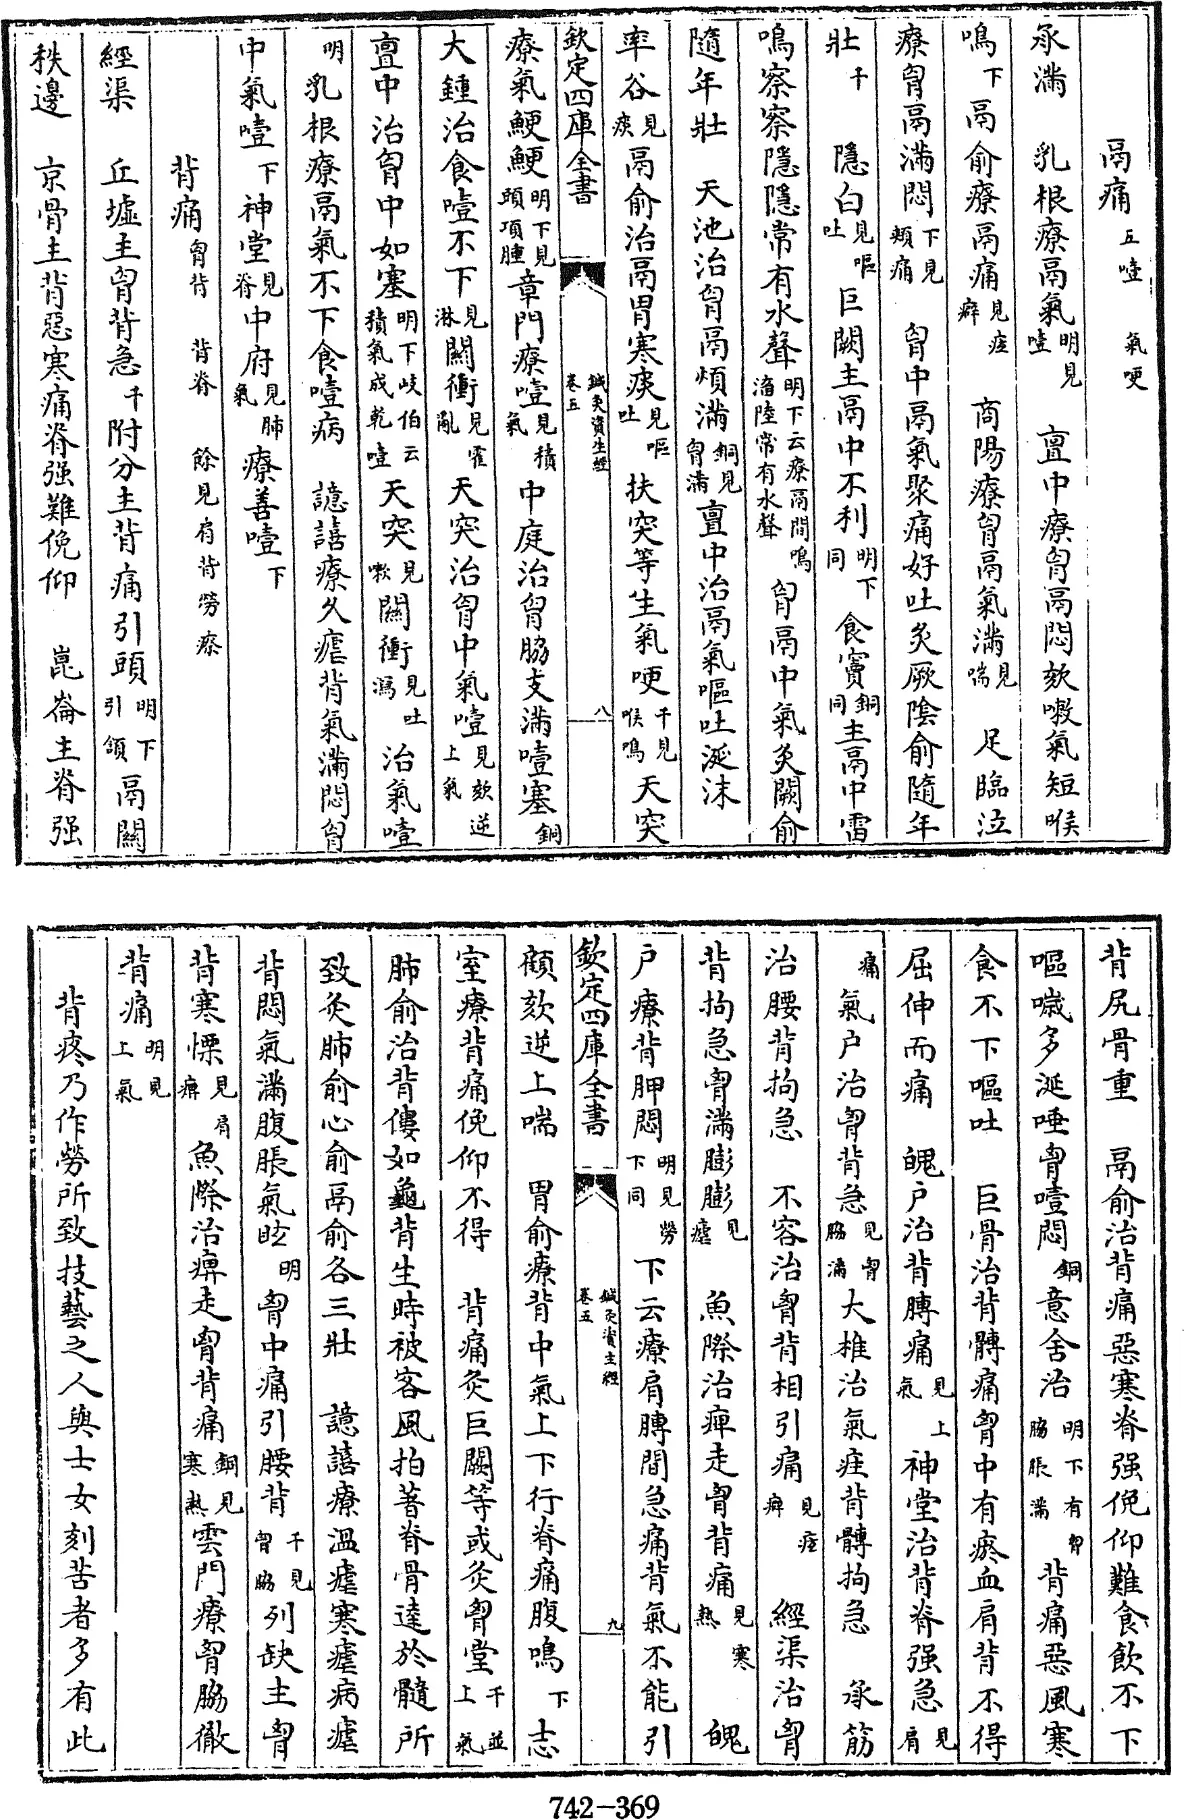 鬲痛五噎 氣哽
承滿 乳根療鬲氣噎明見 亶中療胷鬲悶欬嗽氣短喉
鳴下鬲俞療鬲痛見痃癖 商陽療胷鬲氣滿見喘 足臨泣
療胷鬲滿悶下見頰痛 胷中鬲氣聚痛好吐灸厥陰俞隨年
壯千 隱白見嘔吐巨闕主鬲中不利明下同食竇銅同主鬲中雷
鳴察察隱隱常有水聲明下云療鬲間鳴湽陸常有水聲胷鬲中氣灸闕俞
隨年壯 天池治胷鬲煩滿銅見胷滿亶中治鬲氣嘔吐涎沫
率谷見痰鬲俞治鬲胃寒痰見嘔吐扶突等生氣哽千見喉鳴天突
欽定四庫全書 鍼灸資生經卷五 八
療氣鯁鯁明下見頭項腫章門療噎見積氣中庭治胷脇支滿噎塞銅
大鍾治食噎不下見淋關衝見霍亂天突治胷中氣噎見欬逆上氣
亶中治胷中如塞明下岐伯云積氣成乾噎天突見嗽關衝見吐瀉治氣噎
明乳根療鬲氣不下食噎病 譩譆療久瘧背氣滿悶胷
中氣噎下神堂見脊中府見肺氣療善噎下
背痛胷背 背脊 餘見肩背勞瘵
經渠 丘墟主胷背急千附分主背痛引頭明下引頷鬲關
秩邊 京骨主背惡寒痛脊强難俛仰 崑崙主脊强
背尻骨重 鬲俞治背痛惡寒脊强俛仰難食飲不下
嘔噦多涎唾胷噎悶銅意舍治明下有胷脇脹滿背痛惡風寒
食不下嘔吐 巨骨治背髆痛胷中有瘀血肩背不得
屈伸而痛 魄戶治背膊痛見上氣神堂治背脊强急見肩
痛氣户治胷背急見胷脇滿大椎治氣疰背髆拘急 承筋
治腰背拘急 不容治胷背相引痛見痃癖 經渠治胷
背拘急胷滿膨膨見瘧 魚際治痺走胷背痛見寒熱 魄
户療背胛悶明見勞下同下云療肩膊間急痛背氣不能引
欽定四庫全書 鍼灸資生經卷五 九
顧欬逆上喘 胃俞療背中氣上下行脊痛腹鳴下志
室療背痛俛仰不得 背痛灸巨闕等或灸胷堂千並上氣
肺俞治背僂如龜背生時被客風拍著脊骨達於髓所
致灸肺俞心俞鬲俞各三壯 譩譆療溫瘧寒瘧病瘧
背悶氣滿腹脹氣眩明胷中痛引腰背千見胷脇列缺主胷
背寒慄見肩痺魚際治痺走胷背痛銅見寒熱雲門療胷脇徹
背痛明見上氣
背疼乃作勞所致技藝之人與士女刻苦者多有此
742-369